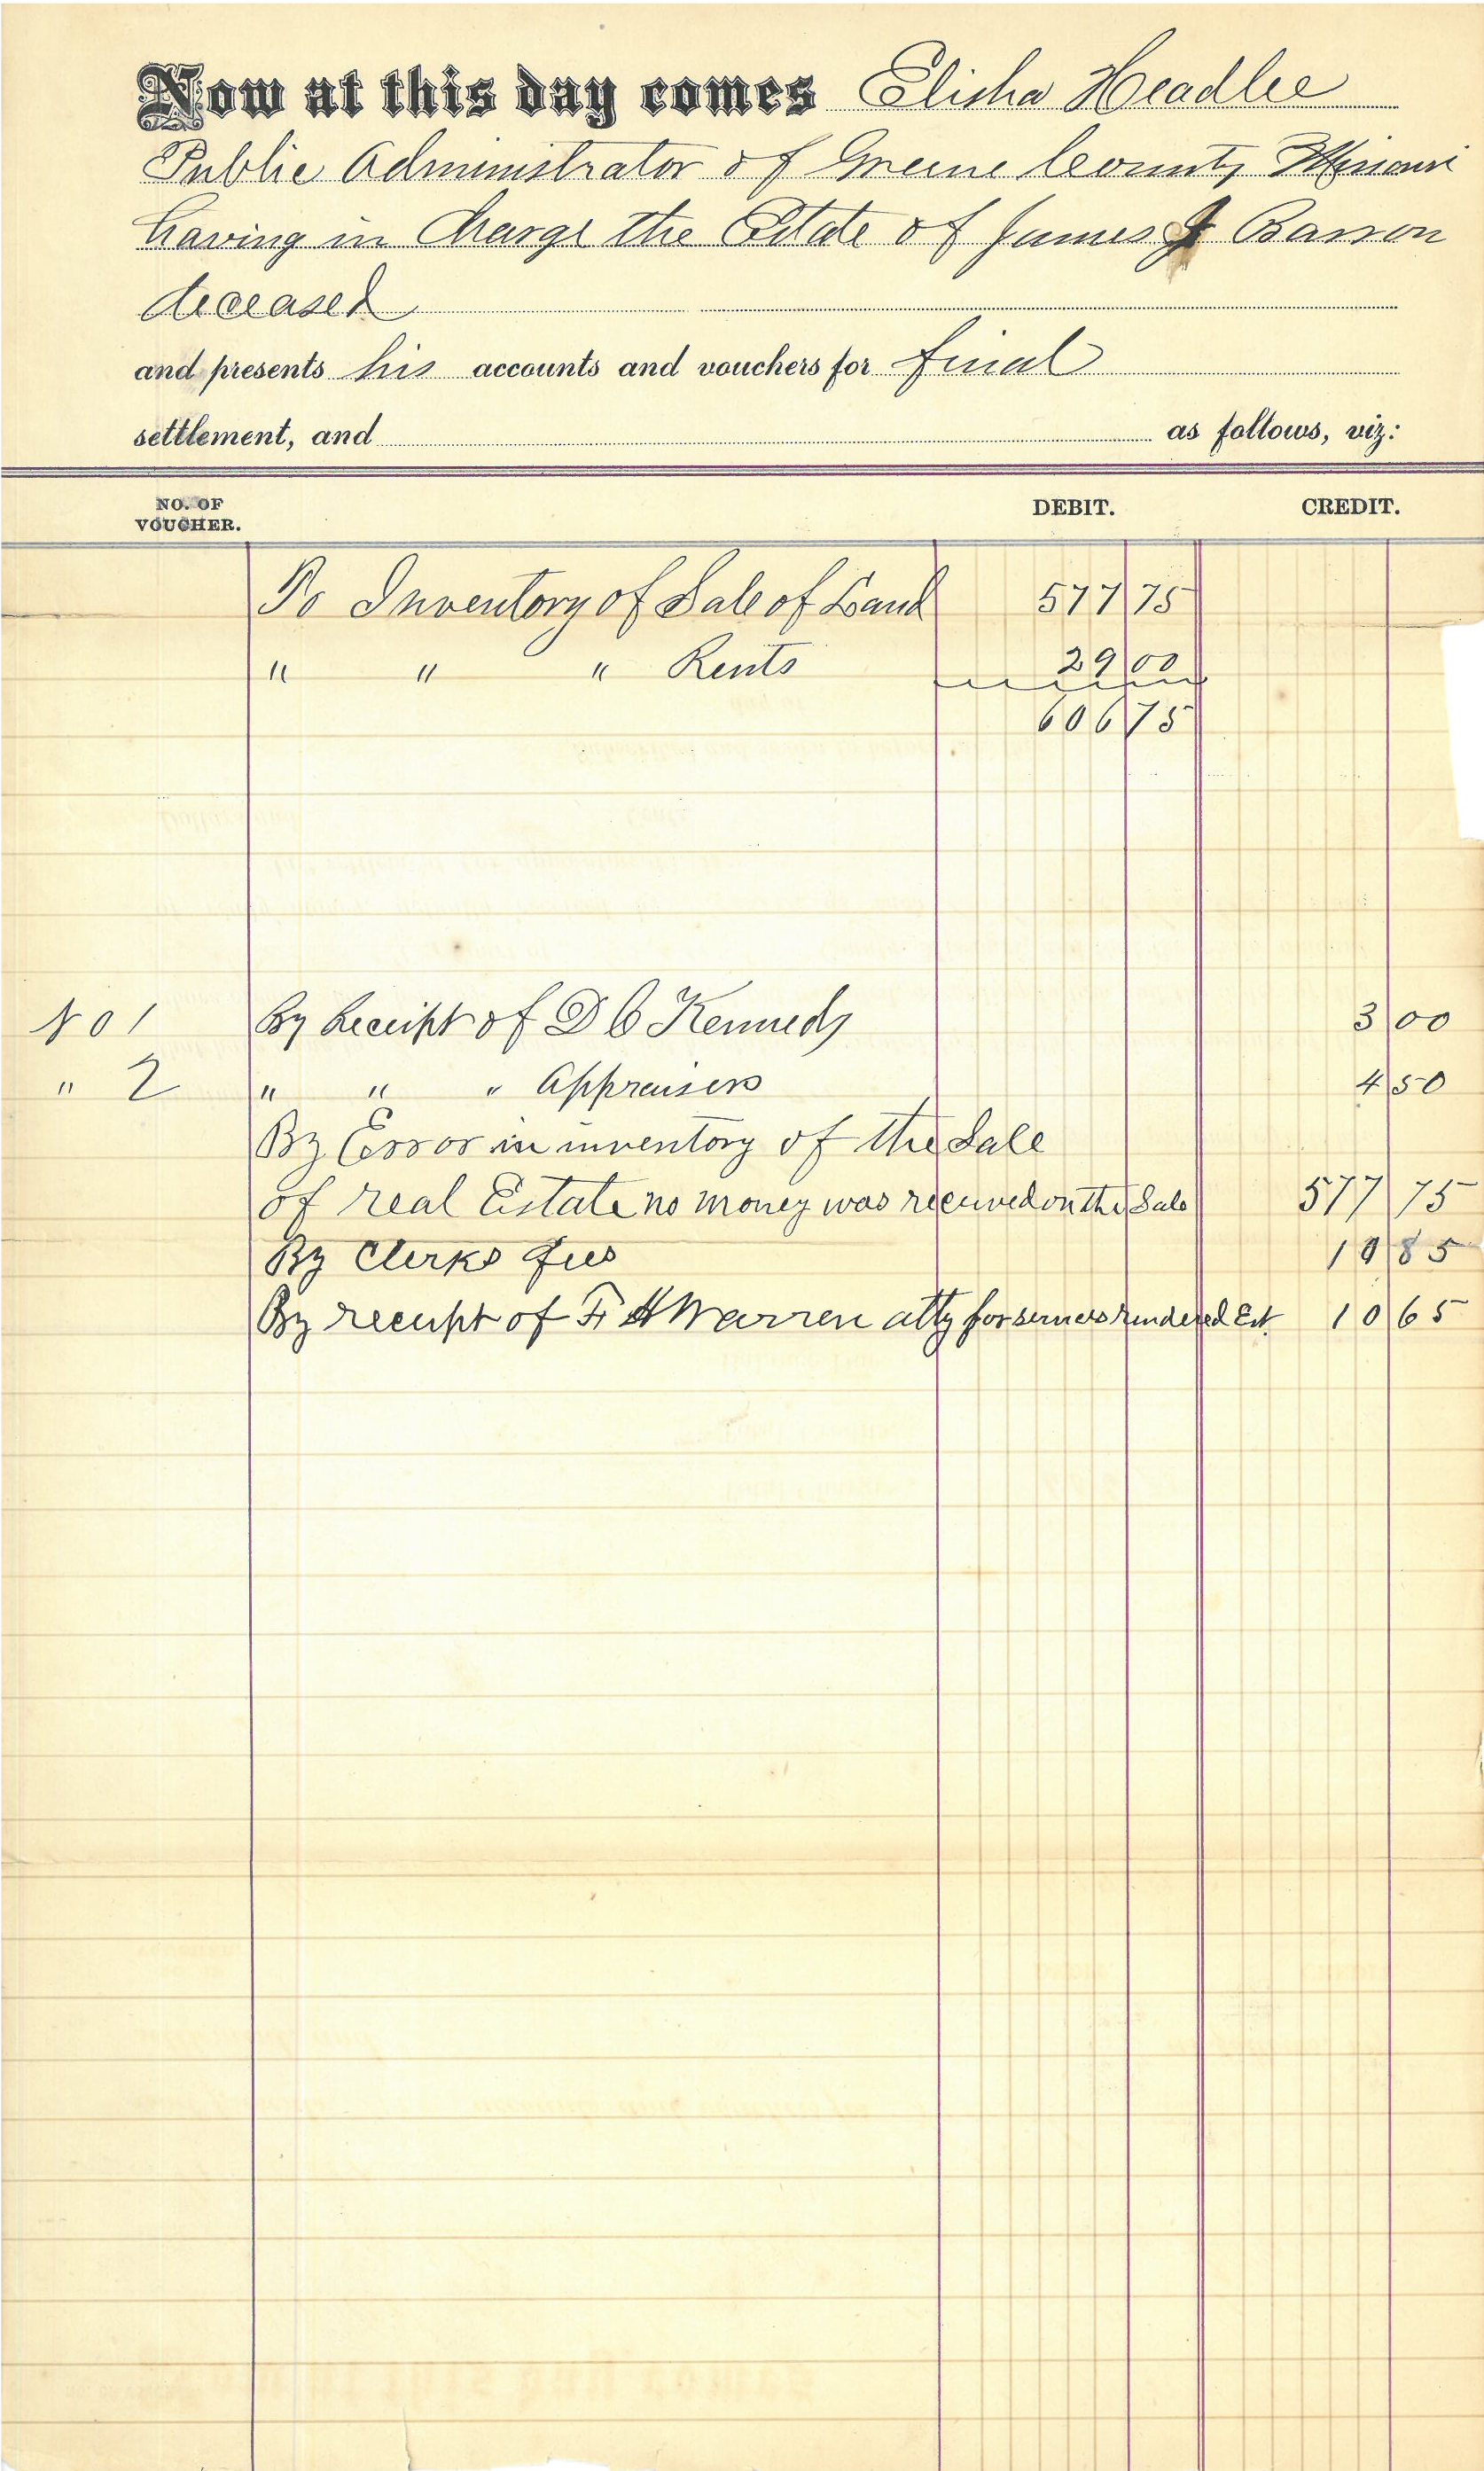 Now at this day comes Elisha Headlee
Public Administrator of Greene County Missouri
having in Charge the Estate of James J Barron
deceased
and presents his accounts and vouchers for final
settlement, and as follows, viz:
NO. OF VOUCHER. DEBIT. CREDIT.
To Inventory of Sale of Land 577 75
" " " Rents 29 00
606 75
No 1 By Receipt of D C Kennedy 3 00
" 2 " " " Appraisers 4 50
By Error in inventory of the Sale
of real Estate no money was received on the Sale 577 75
By Clerks fees 10 85
By receipt of F H Warren atty for services rendered Est. 10 65